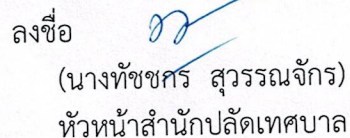 ลงชื่อ
(นางทัชชกร สุวรรณจักร)
หัวหน้าสำนักปลัดเทศบาล